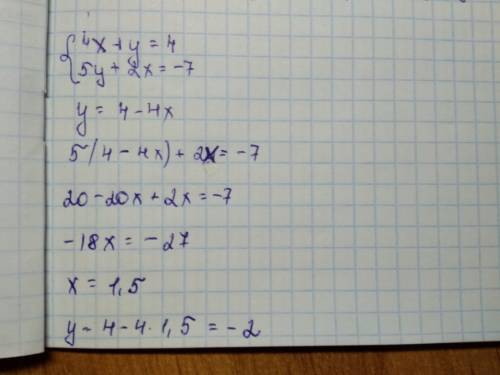 4x+y=4
5y+2x=-7
y=4-4x
5(4-4x)+2x=-7
20-20x+2x=-7
-18x=-27
x=1,5
y-4-4·1,5=-2